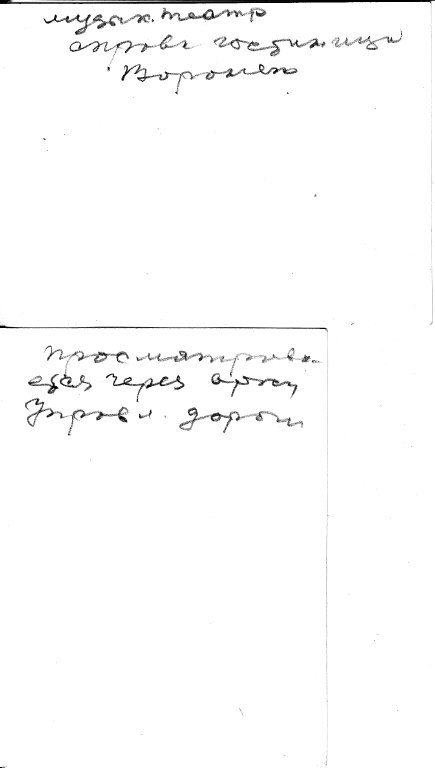 музык. театр
справа гостиница
Воронеж
просматрива-
ется через арку
Управл. дороги